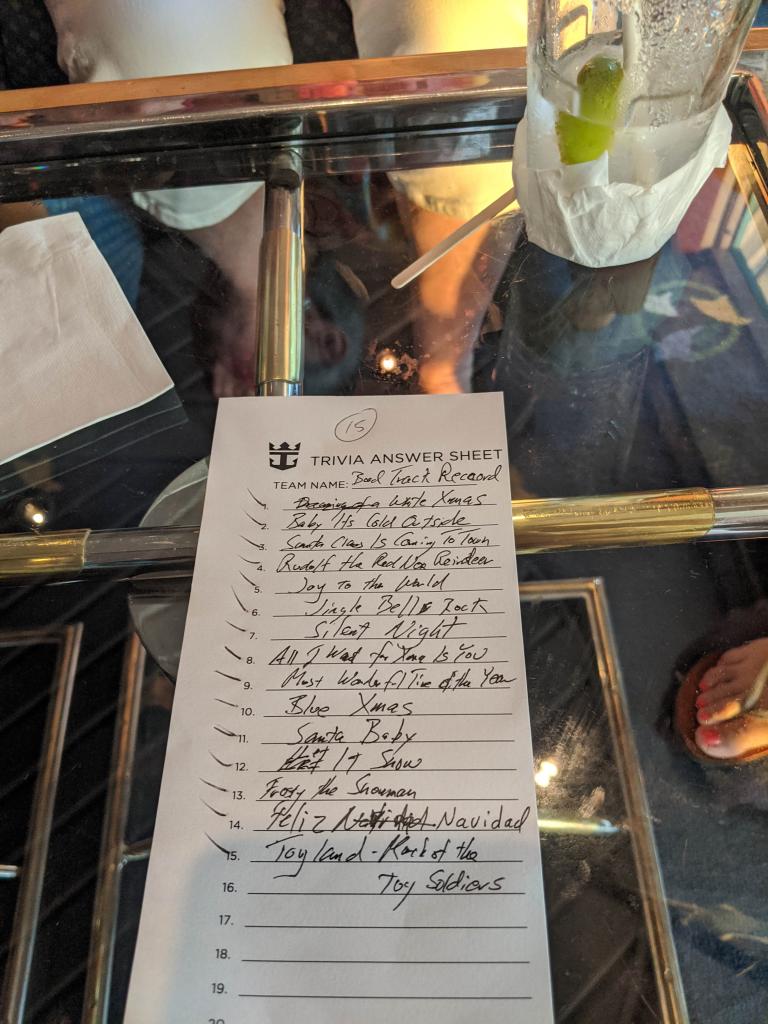 15
TRIVIA ANSWER SHEET
TEAM NAME: Bad Track Recoord
1. Dreaming of a White Xmas
2. Baby Its Cold Outside
3. Santa Claus Is Coming To Town
4. Rudolf the Red Nose Reindeer
5. Joy To the World
6. Jingle Bell Rock
7. Silent Night
8. All I Want for Xmas Is You
9. Most Wonderful Time of the Year
10. Blue Xmas
11. Santa Baby
12. Let It Snow
13. Frosty the Snowman
14. Feliz Navidad
15. Toyland - March of the
16. Toy Soldiers
17.
18.
19.
20